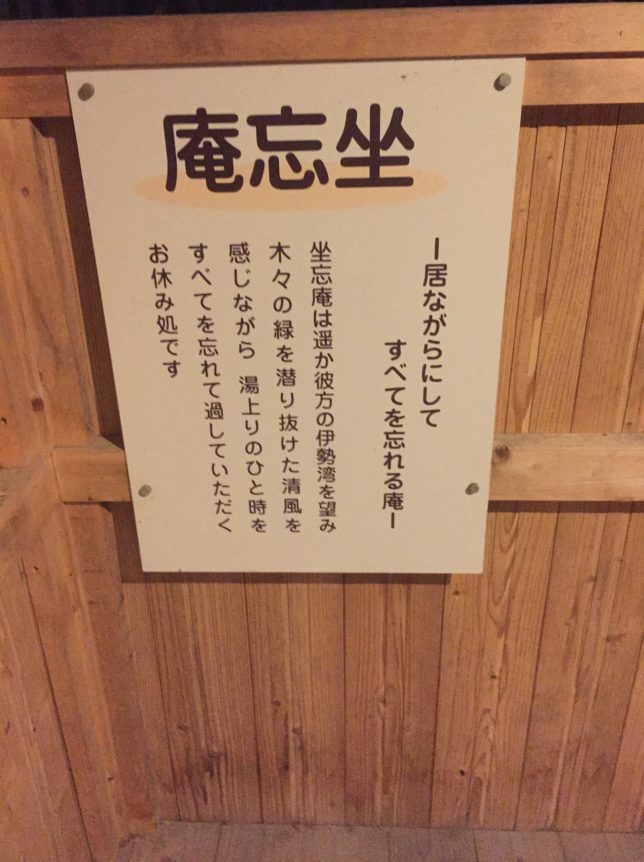 坐忘庵
ー居ながらにして
すべてを忘れる庵ー
坐忘庵は遥か彼方の伊勢湾を望み
木々の緑を潜り抜けた清風を
感じながら 湯上りのひと時を
すべてを忘れて過していただく
お休み処です